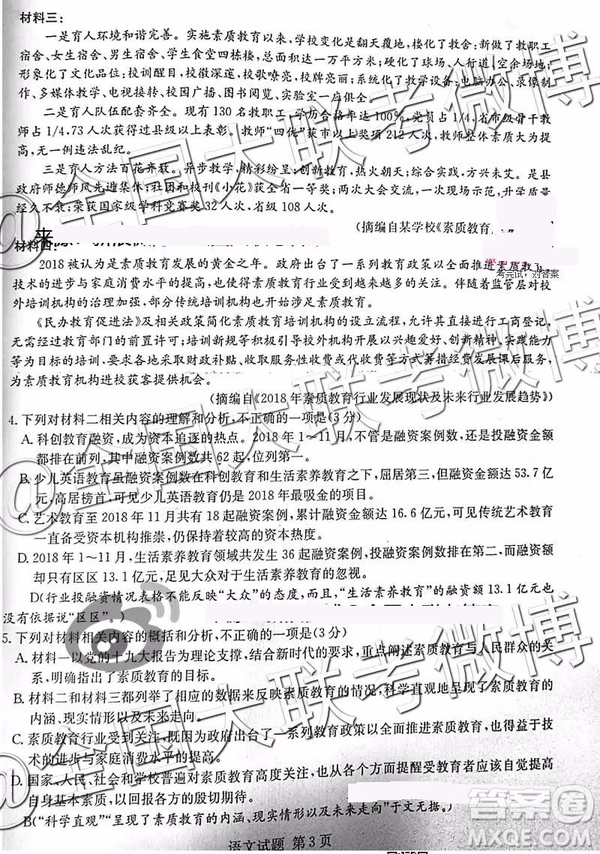 材料三：
一是育人环境和谐完善。实施素质教育以来，学校变化是翻天覆地，楼化了教舍：新做了教职工
宿舍、女生宿舍、男生宿舍、学生食堂四栋楼，总面积达一万平方米；硬化了球场、人行道、空余场地；
形象化了文化品位：校训醒目，校徽深邃，校歌嘹亮，校标精美；系统化了教学设备：电脑办公、录像制
作、多媒体教学、电视接转、校园广播、图书阅览、实验室一应俱全。
二是育人队伍配套齐全。现有130名教职工，学历合格率为100%，党员占1/4，省市级骨干教
师占1/4，73人次获得过县级以上表彰。教师“四优”获市以上奖项212人次，教师整体素质大为提
高，无一例违法乱纪。
三是育人方法百花齐放。异步教学，精彩纷呈；创新教育，热火朝天；综合实践，方兴未艾。是县
政府师德师风先进集体；社团和校刊《小花》获全省一等奖；两次大会交流，一次现场比武，
经久不衰；荣获国家级学科竞赛奖32人次，省级108人次。
（摘编自某学校《素质教育
来
材料
考完试，对答案
2018被认为是素质教育发展的黄金之年。政府出台了一系列教育政策以全面推进素质教育
技术的进步与家庭消费水平的提高，使得素质教育行业受到越来越多的关注。伴随着监管层对校
外培训机构的治理工作，部分传统培训机构也开
《民办教育促进法》及相关政策简化素质教育培训机构的设立流程，允许其直接进行工商登记，
无需经过教育部门的前置许可；新规策略等积极引导校外机构开展以提升中小学生兴趣爱好、
创新精神、实践能力为目的的培训；部分地区探索采取服务性收费或代收费等方式筹措经费发展课后服务，
为素质教育机构进校获客提供机会。
（摘编自《2018年素质教育行业发展现状及未来行业发展趋势》）
4. 下列对材料二相关内容的理解和分析，不正确的一项是（3分）
A. 科创教育融资，成为资本追逐的热点。2018年1－11月，不管是融资案例数，还是投融资金额
都在排的前列，其中融资案例数共62起，位列第一。
B. 少儿英语教育虽融资案例数在科创教育和生活素养教育之下，屈居第三，但融资金额达53.7亿
元，高居榜首，可见少儿英语教育仍是2018年最吸金的项目。
C. 艺术教育至2018年11月共有18起融资案例，累计融资金额达16.6亿元，可见传统艺术教育
一直备受资本机构推崇，仍保持着较高的资本热度。
D. 2018年1－11月，生活素养教育领域共发生36起融资案例，投融资案例数排在第二，而融资额
却只有区区13.1亿元，足见大众对于生活素养教育的忽视。
D（行业投融资情况表格不能反映“大众”的态度，“生活素养教育”的融资额13.1亿元也
没有依据说“区区”。）
5. 下列对材料相关内容的概括和分析，不正确的一项是（3分）
A. 材料一以党的十九大报告为理论支撑，结合新时代的要求，重点阐述素质教育与人民群众的关
系，明确指出了素质教育的目标。
B. 材料二和材料三都列举了相应的数据来反映素质教育，科学直观地呈现了素质教育的
内涵、现实情形以及未来走向。
C. 素质教育行业受到关注，既因为政府出台了一系列教育政策以全面推进素质教育，也得益于技
术的进步与家庭消费水平的提高。
D. 国家、人民、社会和学校普遍对素质教育高度关注，也从各个方面提醒受教育者应该自觉提高
自身基本素质，以回报各方的殷切期待。
B（“科学直观”“呈现了素质教育的内涵、现实情形以及未来走向”于文无据。）
语文试题 第3页
@全国大联考微博
@全国大联考微博
@全国大联考微博
答案圈